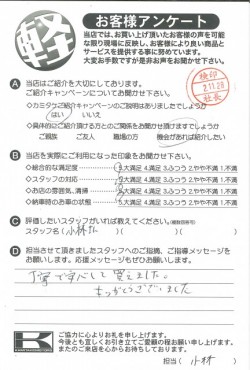 軽
お客様アンケート
当店では、お買い上げ頂いたお客様の声を可能
な限り現場に反映し、お客様により良い商品と
サービスを提供する事に努めています。
大変お手数ですが是非お声をお聞かせ下さい。
検印
2.11.28
社長
A 当店はご紹介を大切にしております。
ご紹介キャンペーンについてお聞かせ下さい。
◇カミタケご紹介キャンペーンのご説明はありましたでしょうか
はい いいえ
◇具体的にご紹介頂ける方とのご関係をお聞かせ頂けますでしょうか
ご親族 ご友人 職場の方 機会があれば紹介したい
B 当店を実際にご利用になった印象をお聞かせ下さい。
◇総合的な満足度 5.大満足 4.満足 3.ふつう 2.やや不満 1.不満
◇スタッフの対応 5.大満足 4.満足 3.ふつう 2.やや不満 1.不満
◇お店の雰囲気、清掃 5.大満足 4.満足 3.ふつう 2.やや不満 1.不満
◇納車時のお車の状態 5.大満足 4.満足 3.ふつう 2.やや不満 1.不満
C 評価したいスタッフがいれば教えてください。(複数回答可)
スタッフ名( 小林さん )
D 担当させて頂きましたスタッフへのご指摘、ご指導メッセージを
お願いします。応援メッセージもぜひお願いします。
丁寧で安心して買えました。
ありがとうございました
K
ご協力に心よりお礼を申し上げます。
今後とも宜しくお引き立てご愛顧の程お願い申し上げます。
またのご来店を心からお待ちしております。
担当( 小林 )